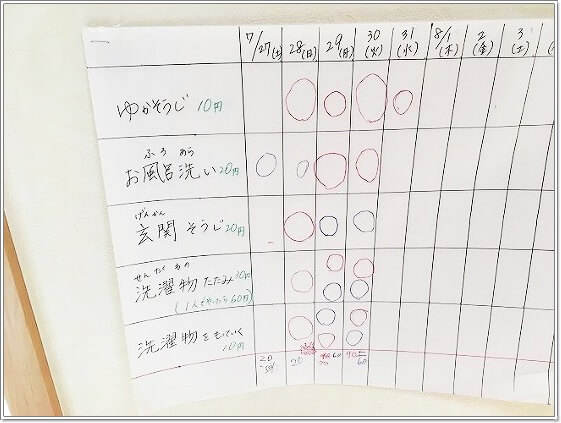 7/27(土) 28(日) 29(月) 30(火) 31(水) 8/1(木) 2(金) 3(土)
ゆかそうじ 10円
ふろ あら
お風呂洗い 20円
げんかん
玄関 そうじ 20円
せんたくもの
洗濯物 たたみ 30円
(1人でやったら60円)
洗濯物をもっていく
10円
20